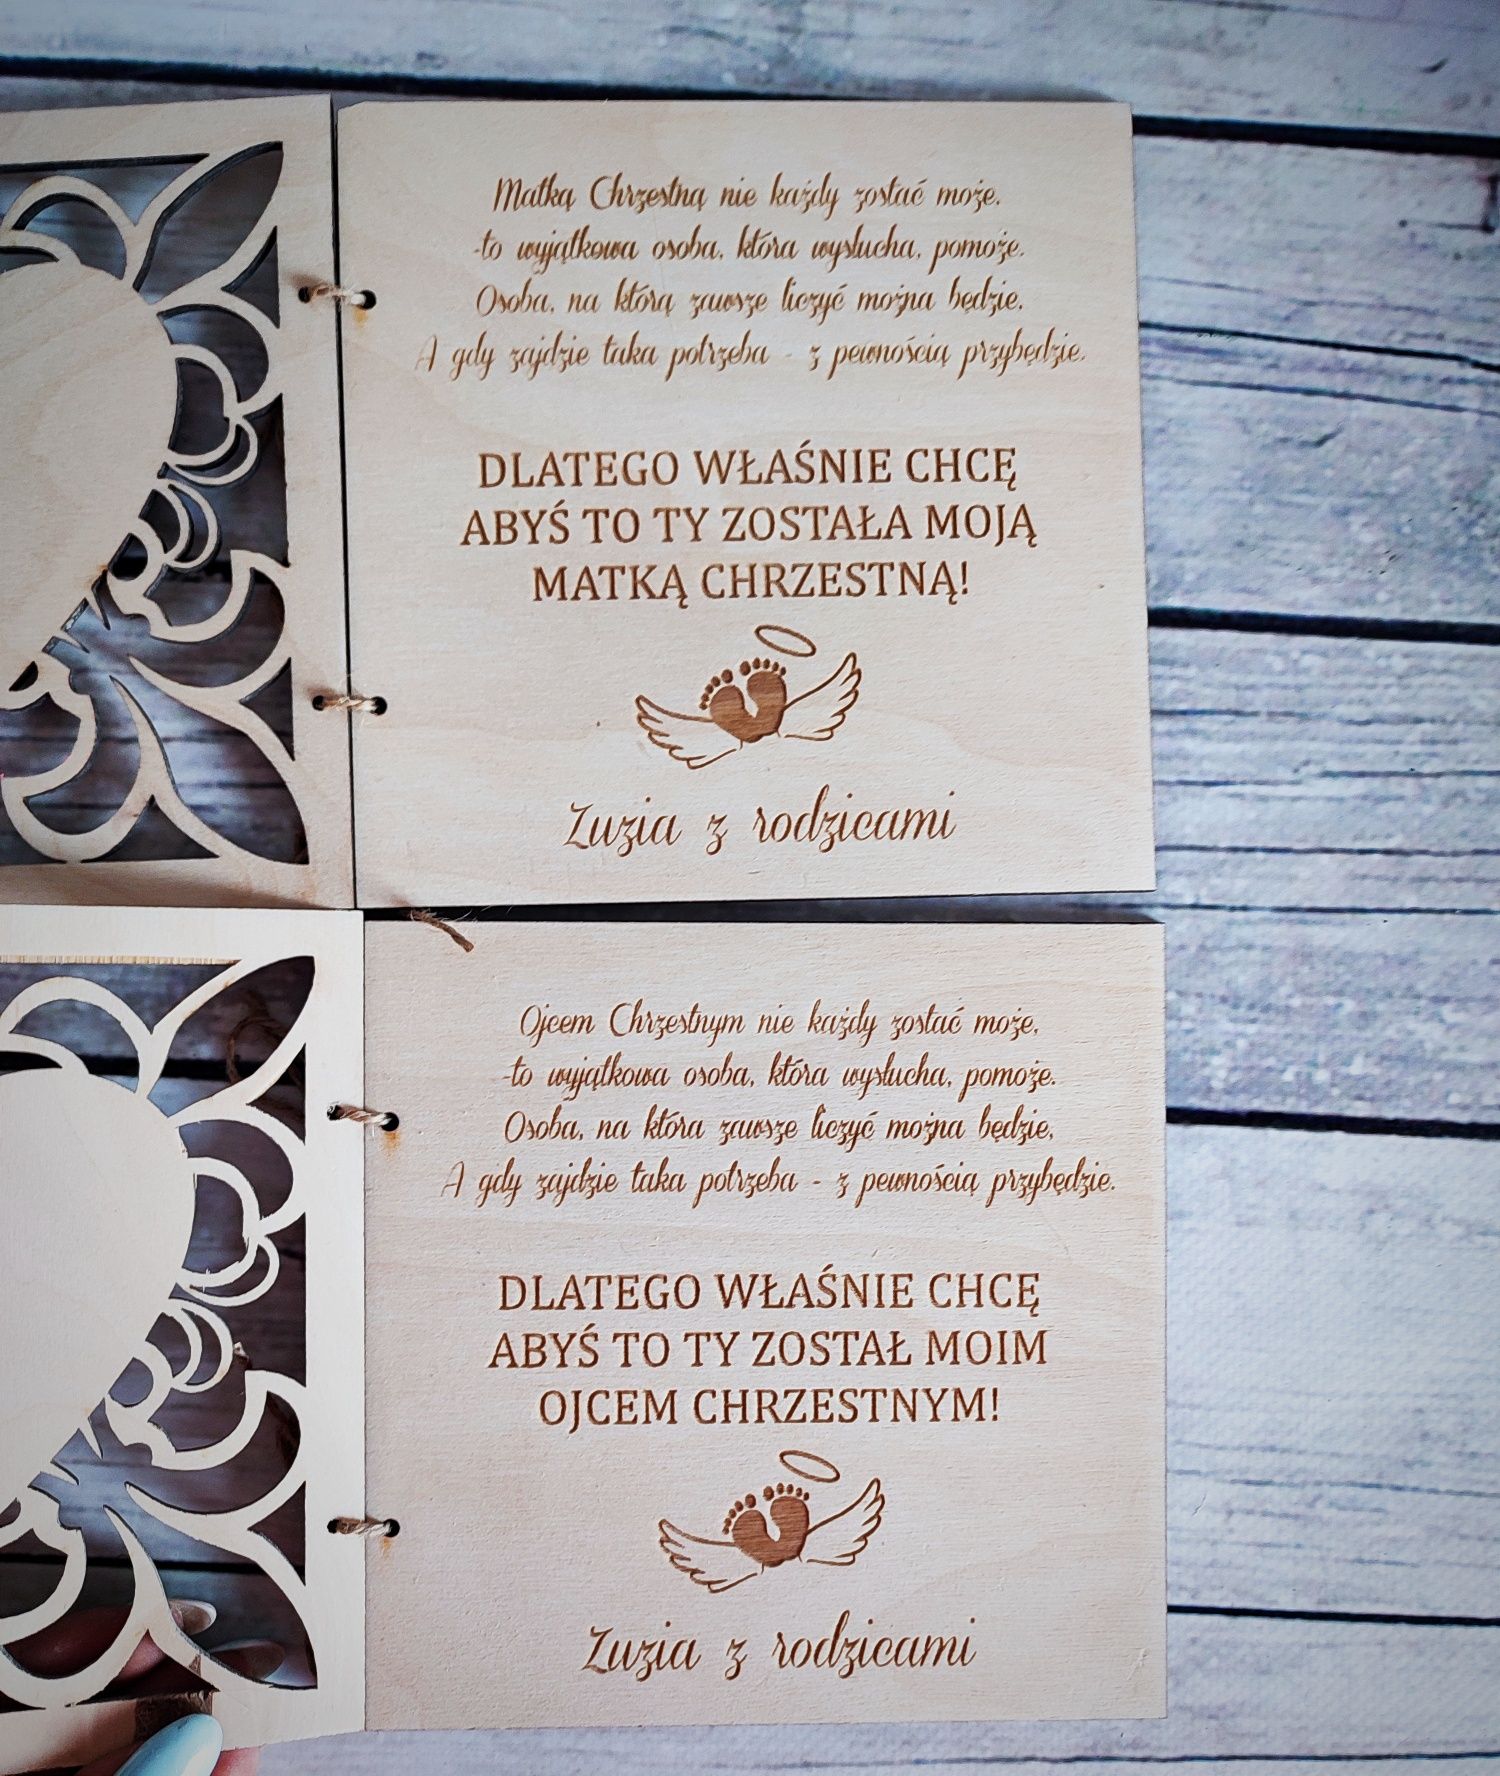 Matką Chrzestną nie każdy zostać może,
-to wyjątkowa osoba, która wysłucha, pomoże.
Osoba, na którą zawsze liczyć można będzie.
A gdy zajdzie taka potrzeba - z pewnością przybędzie.
DLATEGO WŁAŚNIE CHCĘ
ABYŚ TO TY ZOSTAŁA MOJĄ
MATKĄ CHRZESTNĄ!
Zuzia z rodzicami
Ojcem Chrzestnym nie każdy zostać może,
-to wyjątkowa osoba, która wysłucha, pomoże.
Osoba, na która zawsze liczyć można będzie,
A gdy zajdzie taka potrzeba - z pewnością przybędzie.
DLATEGO WŁAŚNIE CHCĘ
ABYŚ TO TY ZOSTAŁ MOIM
OJCEM CHRZESTNYM!
Zuzia z rodzicami